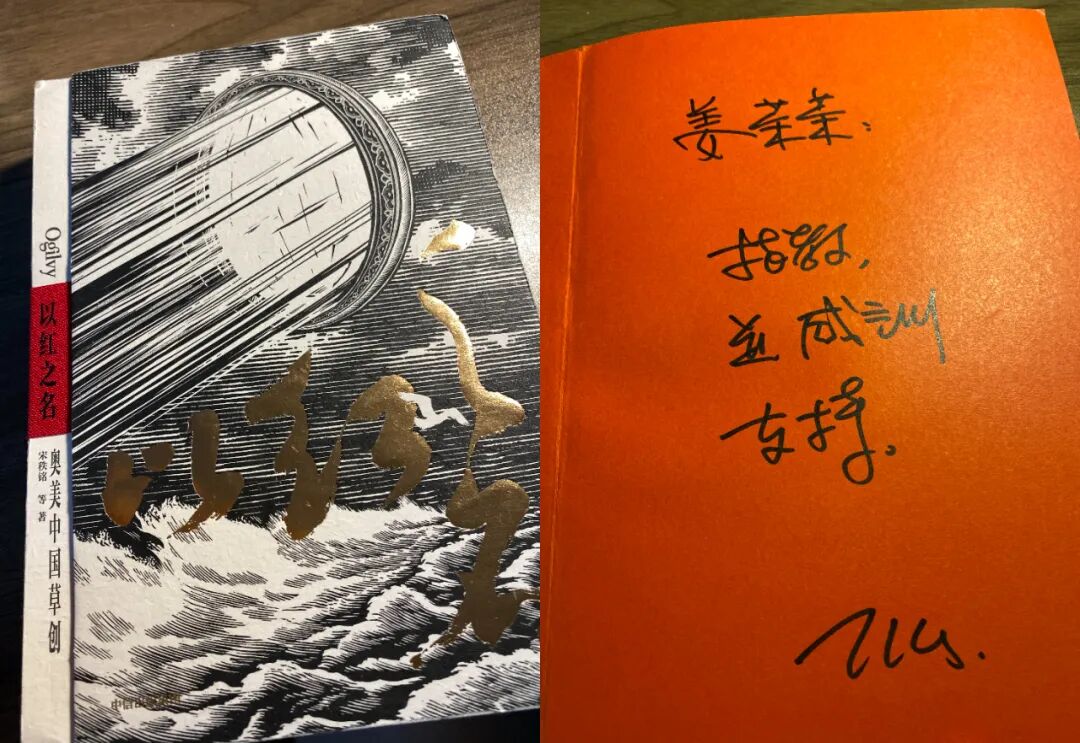 Ogilvy
以红之名
奥美中国草创
宋秩铭 等 著
以红之名
中信出版集团
姜茶茶:
指教,
并感谢
支持。